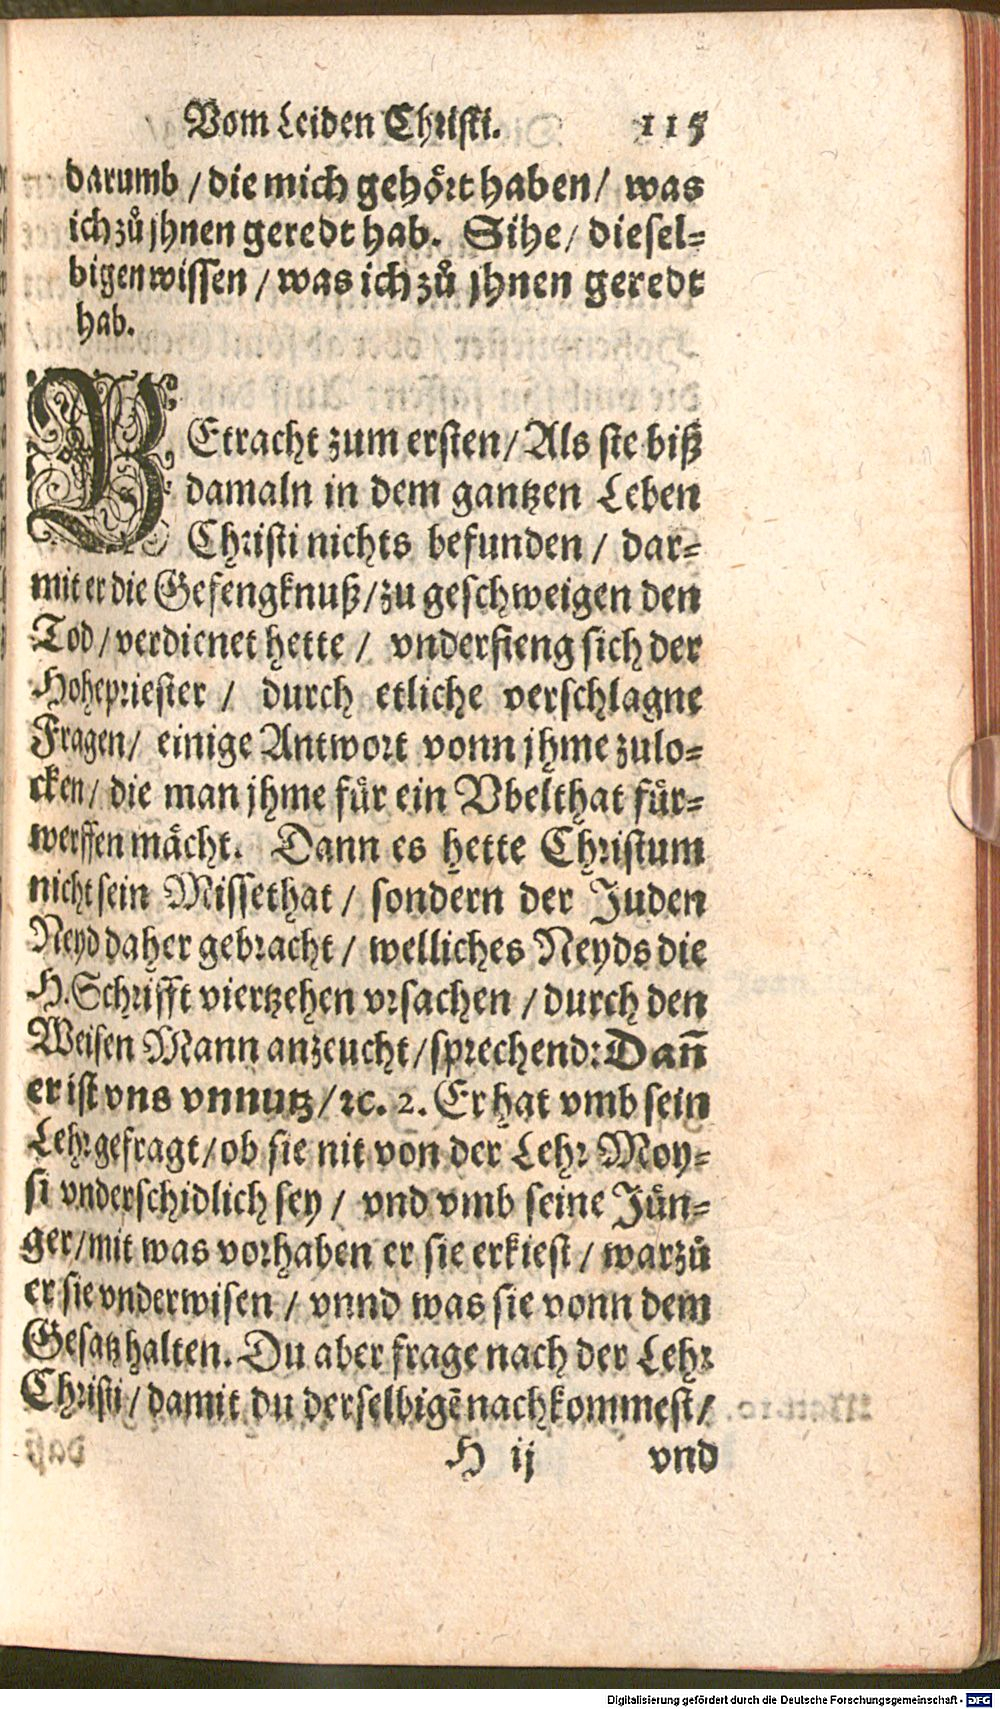 Vom Leiden Christi. 115
darumb / die mich gehört haben / was
ich zů jhnen geredt hab. Sihe / diesel-
bigen wissen / was ich zů jhnen geredt
hab.
BEtracht zum ersten / Als sie biß
damaln in dem gantzen Leben
Christi nichts befunden / dar-
mit er die Gefengknuß / zu geschweigen den
Tod / verdienet hette / vnderfieng sich der
Hohepriester / durch etliche verschlagne
Fragen / einige Antwort vonn jhme zulo-
cken / die man jhme für ein Vbelthat für-
werffen mächt. Dann es hette Christum
nicht sein Missethat / sondern der Juden
Neyd daher gebracht / welliches Neyds die
H. Schrifft viertzehen vrsachen / durch den
Weisen Mann anzeucht / sprechend: Dañ
er ist vns vnnutz / ꝛc. 2. Er hat vmb sein
Lehr gefragt / ob sie nit von der Lehr Moy-
si vnderschidlich sey / vnd vmb seine Jün-
ger / mit was vorhaben er sie erkiest / warzů
er sie vnderwisen / vnnd was sie vonn dem
Gesatz halten. Du aber frage nach der Lehr
Christi / damit du derselbigē nachkommest /
H ij vnd
Digitalisierung gefördert durch die Deutsche Forschungsgemeinschaft - DFG